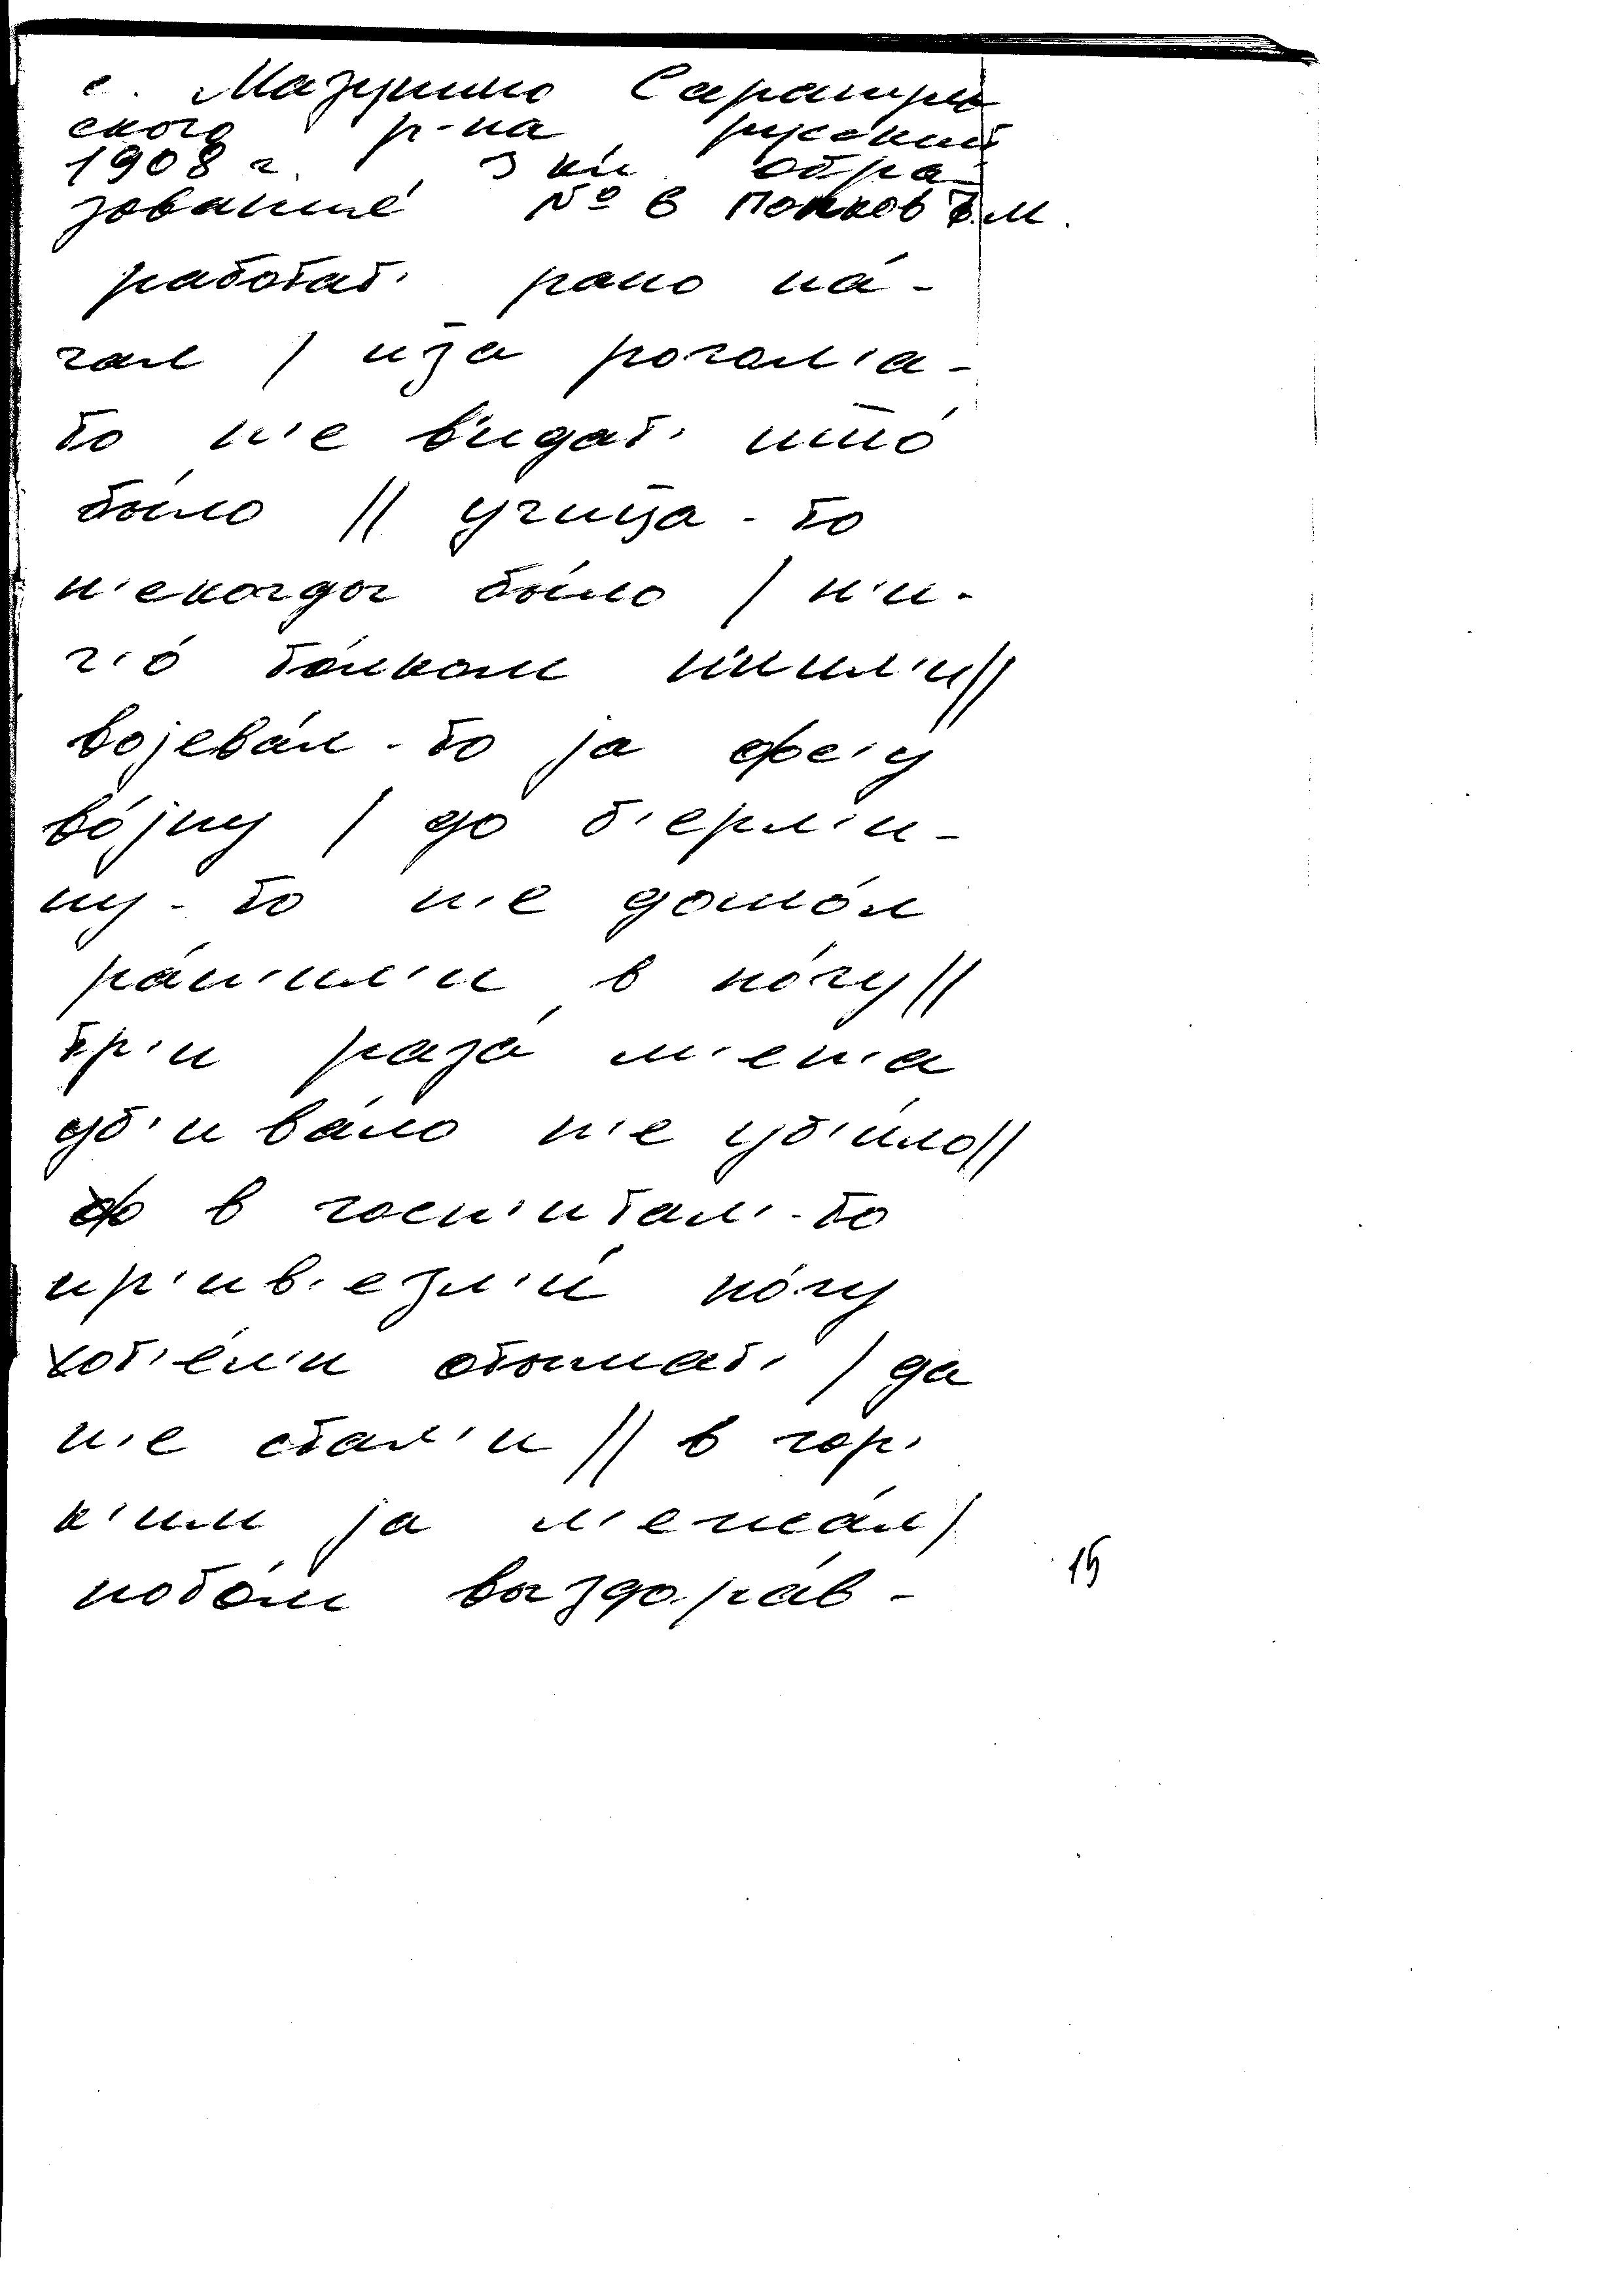 с. Мазунино Сарапуль
ского р-на русский
1908 г. 3 кл. обра-
зование № 6 Попков Т.М.
работат' рано на́-
чал / иза рогал'а-
то н'е в'идат' што́
бы́ло // учица-то
н'екогдог бы́ло / н'и-
ч'о́ то́лком н'ишл'и//
војева́л-то ја фс'у
во́јну / до б'ерл'и-
ну-то н'е дошо́л
ра́н'ил'и в но́гу//
тр'и раза́ м'ен'а
уб'ива́ло н'е уб'и́ло//
в госп'итал'-то
пр'ив'езл'и́ но́гу
хот'е́л'и отымат' / да
н'е стал'и // в гор'
к'им ја л'ежа́л/
пото́м выздора́в-
15